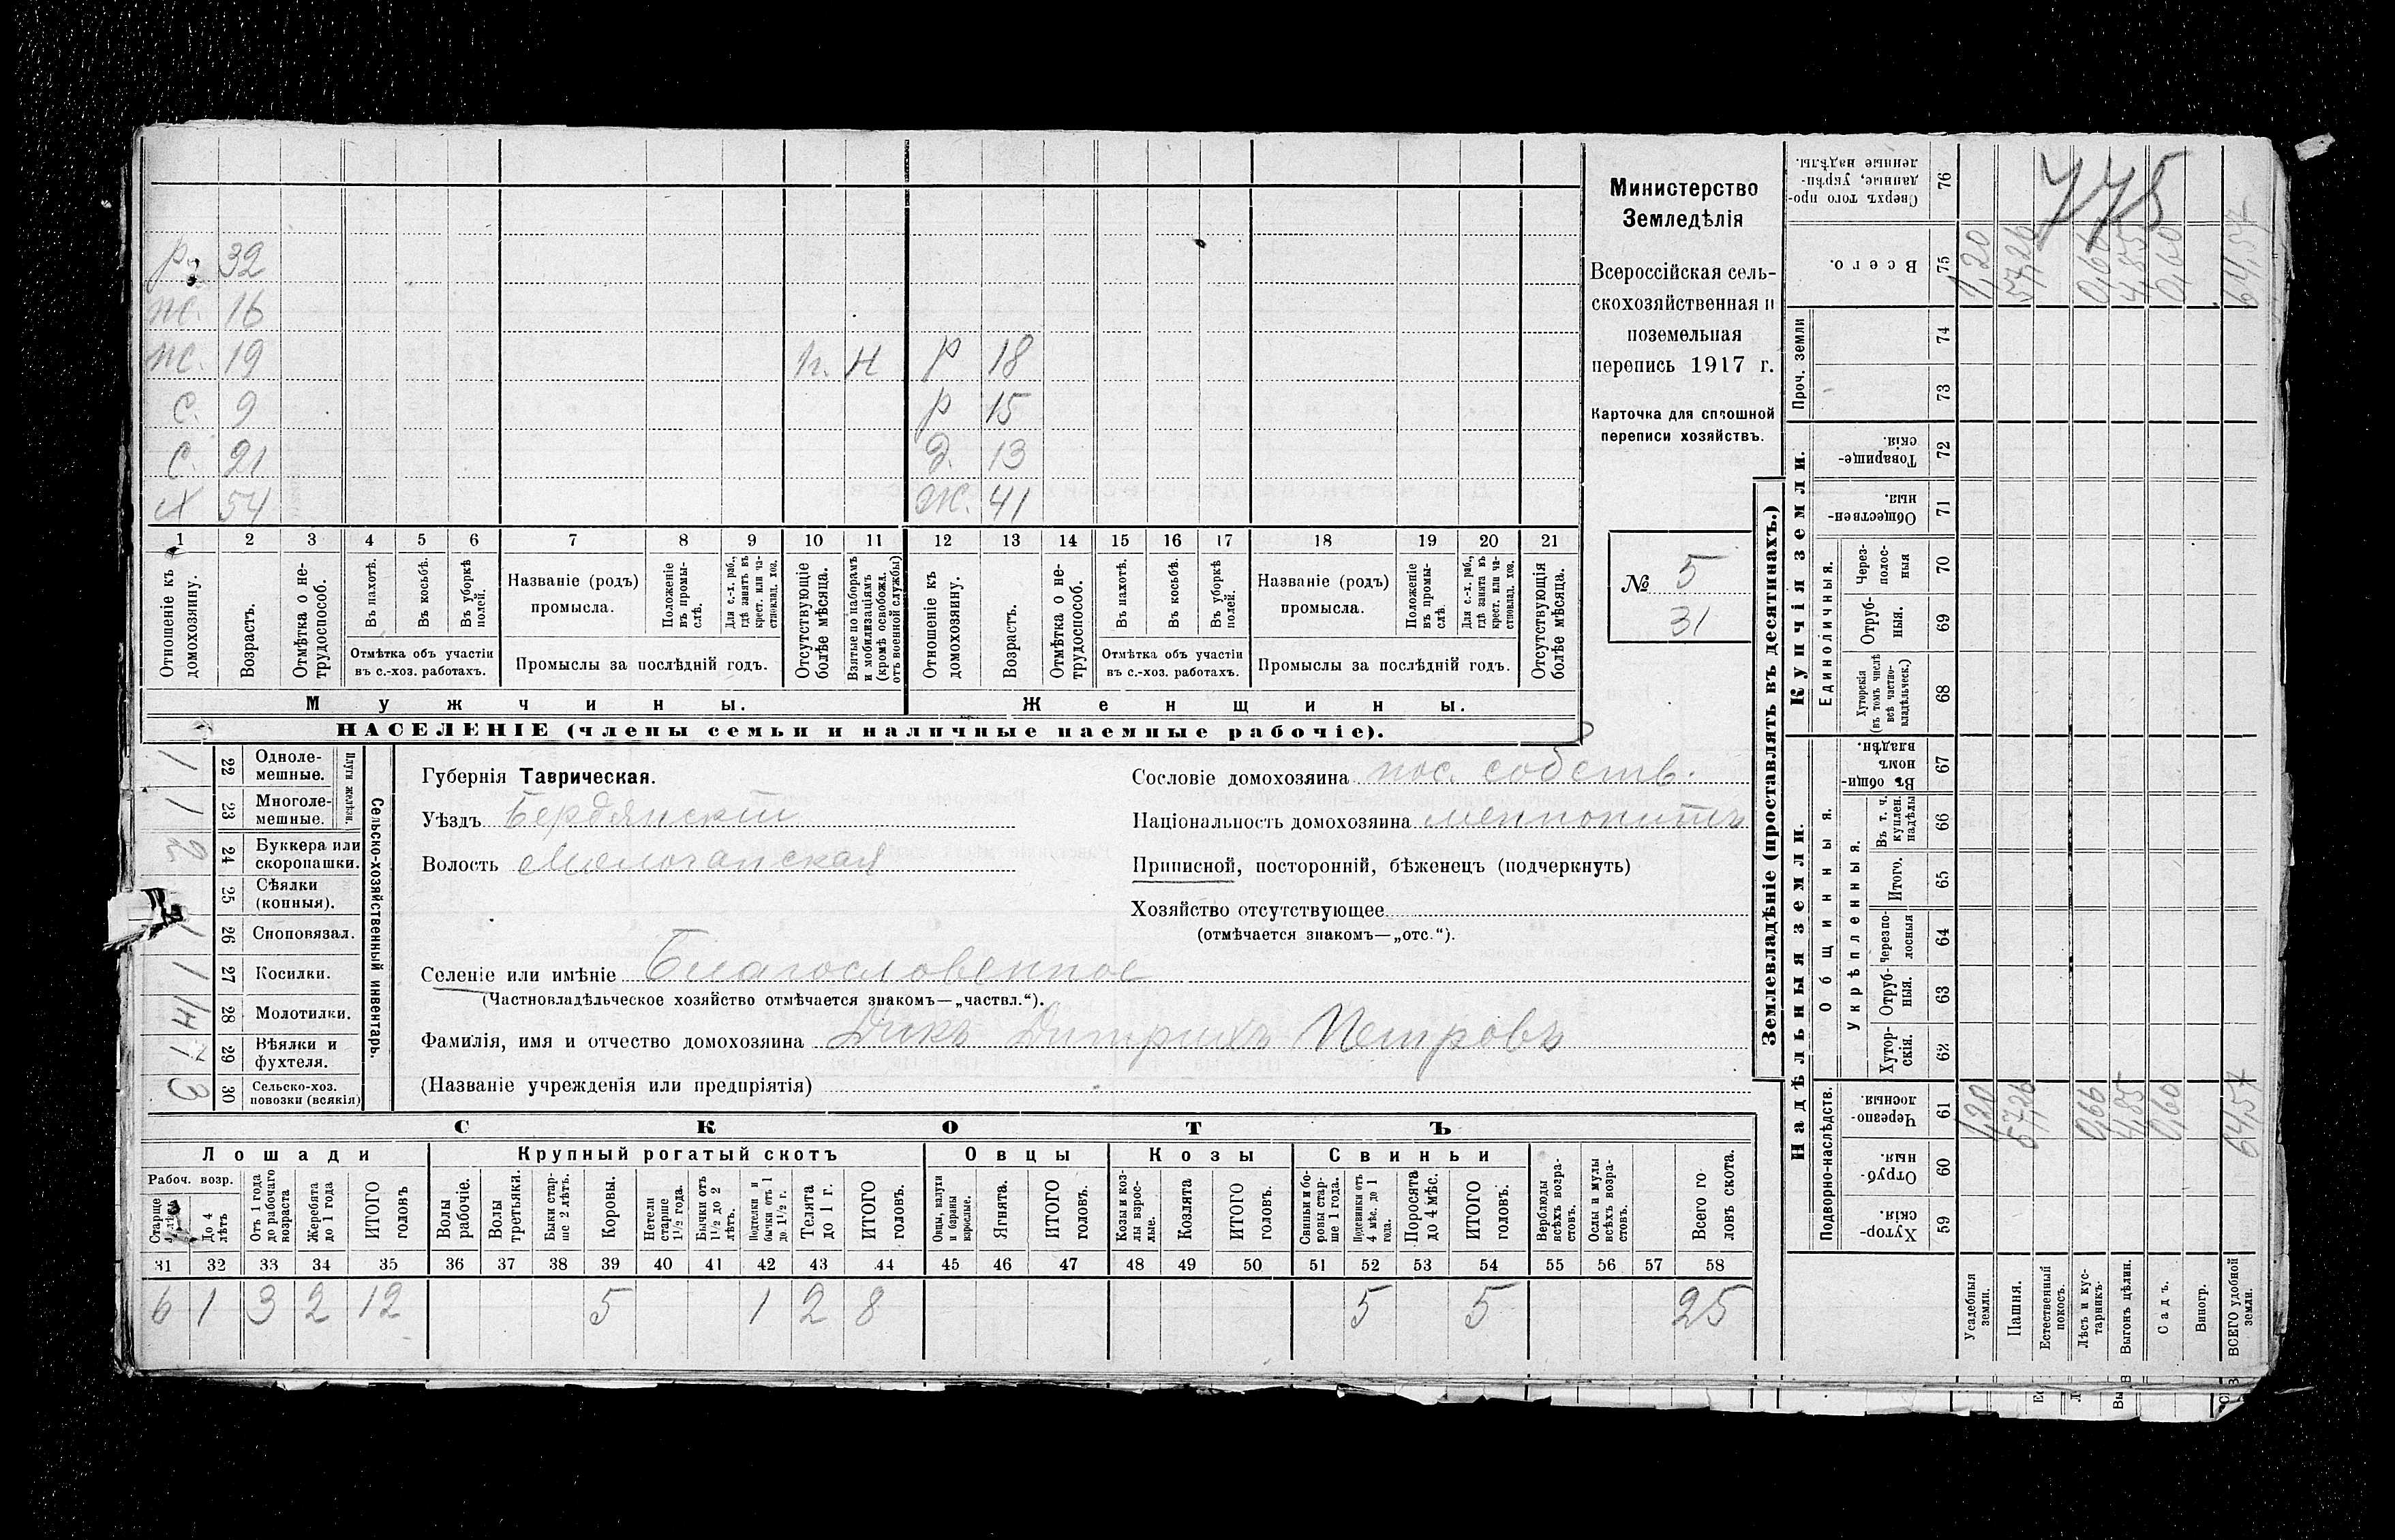 775
Министерство
Земледѣлія
Всероссійская сель-
скохозяйственная и
поземельная
перепись 1917 г.
Карточка для сплошной
переписи хозяйствъ.
№ 5
31
р. 32
16
19 Н р 18
с. 9 р 15
с. 21 д. 13
х 54 ж. 41
1 2 3 4 5 6 7 8 9 10 11 12 13 14 15 16 17 18 19 20 21
Отношеніе къ домохозяину.
Возрастъ.
Отмѣтка о не-трудоспособ.
Въ пахотѣ.
Въ косьбѣ.
Въ уборкѣ полей.
Отмѣтка объ участіи
въ с.-хоз. работахъ.
Названіе (родъ)
промысла.
Положеніе въ промы-слѣ.
Для с.-х. раб., гдѣ занятъ въ крест. или ча-стновлад. хоз.
Промыслы за послѣдній годъ.
Отсутствующіе болѣе мѣсяца.
Взятые по наборамъ и мобилизаціямъ (кромѣ освобожд. отъ военной службы)
Отношеніе къ домохозяину.
Возрастъ.
Отмѣтка о не-трудоспособ.
Въ пахотѣ.
Въ косьбѣ.
Въ уборкѣ полей.
Отмѣтка объ участіи
въ с.-хоз. работахъ.
Названіе (родъ)
промысла.
Положеніе въ промы-слѣ.
Для с.-х. раб., гдѣ занята въ крест. или ча-стновлад. хоз.
Промыслы за послѣдній годъ.
Отсутствующія болѣе мѣсяца.
Мужчины. Женщины.
НАСЕЛЕНІЕ (члены семьи и наличные наемные рабочіе).
Сельско-хозяйственный инвентарь.
Плуги желѣзн.
1 22 Одноле-мешные.
1 23 Многоле-мешные.
2 24 Буккера или скоропашки.
25 Сѣялки (конныя).
26 Сноповязал.
1 27 Косилки.
28 Молотилки.
1 29 Вѣялки и фухтеля.
3 30 Сельско-хоз. повозки (всякія)
Губернія Таврическая.
Уѣздъ Бердянскій
Волость Молочанская
Сословіе домохозяина пос. собств.
Національность домохозяина меннонитъ
Приписной, посторонній, бѣженецъ (подчеркнуть)
Хозяйство отсутствующее
(отмѣчается знакомъ—„отс.“).
Селеніе или имѣніе Благословенное
(Частновладѣльческое хозяйство отмѣчается знакомъ—„частвл.“).
Фамилія, имя и отчество домохозяина Дикъ Дитрихъ Петровъ
(Названіе учрежденія или предпріятія)
СКОТЪ
Лошади Крупный рогатый скотъ Овцы Козы Свиньи
Рабоч. возр.
Старше
До 4 лѣтъ
Отъ 1 года до рабочаго возраста
Жеребята до 1 года
ИТОГО головъ
Волы рабочіе.
Волы третьяки.
Быки стар-ше 2 лѣтъ.
Коровы.
Нетели старше 1½ года.
Бычки отъ 1½ до 2 лѣтъ.
Подтелки и бычки отъ 1 до 1½ г.
Телята до 1 г.
ИТОГО головъ.
Овцы, валухи и бараны взрослые.
Ягнята.
ИТОГО головъ.
Козы и коз-лы взрос-лые.
Козлята
ИТОГО головъ.
Свиньи и бо-ровы стар-ше 1 года.
Подсвинки отъ 4 мѣс. до 1 года.
Поросята до 4 мѣс.
ИТОГО головъ.
Верблюды всѣхъ возра-стовъ.
Ослы и мулы всѣхъ возра-стовъ.
Всего го-ловъ скота.
31 32 33 34 35 36 37 38 39 40 41 42 43 44 45 46 47 48 49 50 51 52 53 54 55 56 57 58
6 1 3 2 12 5 1 2 8 5 5 25
Землевладѣніе (проставлять въ десятинахъ.)
Надѣльныя земли. Купчія земли.
Подворно-наслѣдств.
Общинныя.
Укрѣпленныя.
Единоличныя.
Проч. земли
Хутор-скія. 59
Отруб-ныя. 60
Черезпо-лосныя. 61
Хутор-скія. 62
Отруб-ныя. 63
Черезпо-лосныя 64
Итого. 65
Въ т. ч. куплен. надѣлы 66
Въ общин-номъ владѣн. 67
Хуторскія (въ томъ числѣ всѣ частно-владѣльческ.) 68
Отруб-ныя. 69
Через-полос-ныя 70
Обществен-ныя. 71
Товарище-скія. 72
73
74
Всего. 75
Сверхъ того про-данные, укрѣп-ленные надѣлы. 76
Усадебныя земли. 1,20 1,20
Пашня. 57,26 57,26
Естественный покосъ.
Лѣсъ и кус-тарникъ. 0,66 0,66
Выгонъ цѣлин. 4,85 4,85
Садъ. 0,60 0,60
Виногр.
ВСЕГО удобной земли. 64,57 64,57